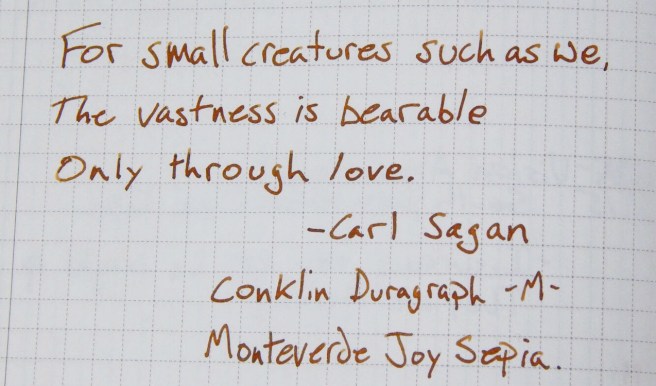 For small creatures such as we,
The vastness is bearable
Only through love.
-Carl Sagan
Conklin Duragraph -M-
Monteverde Joy Sepia.